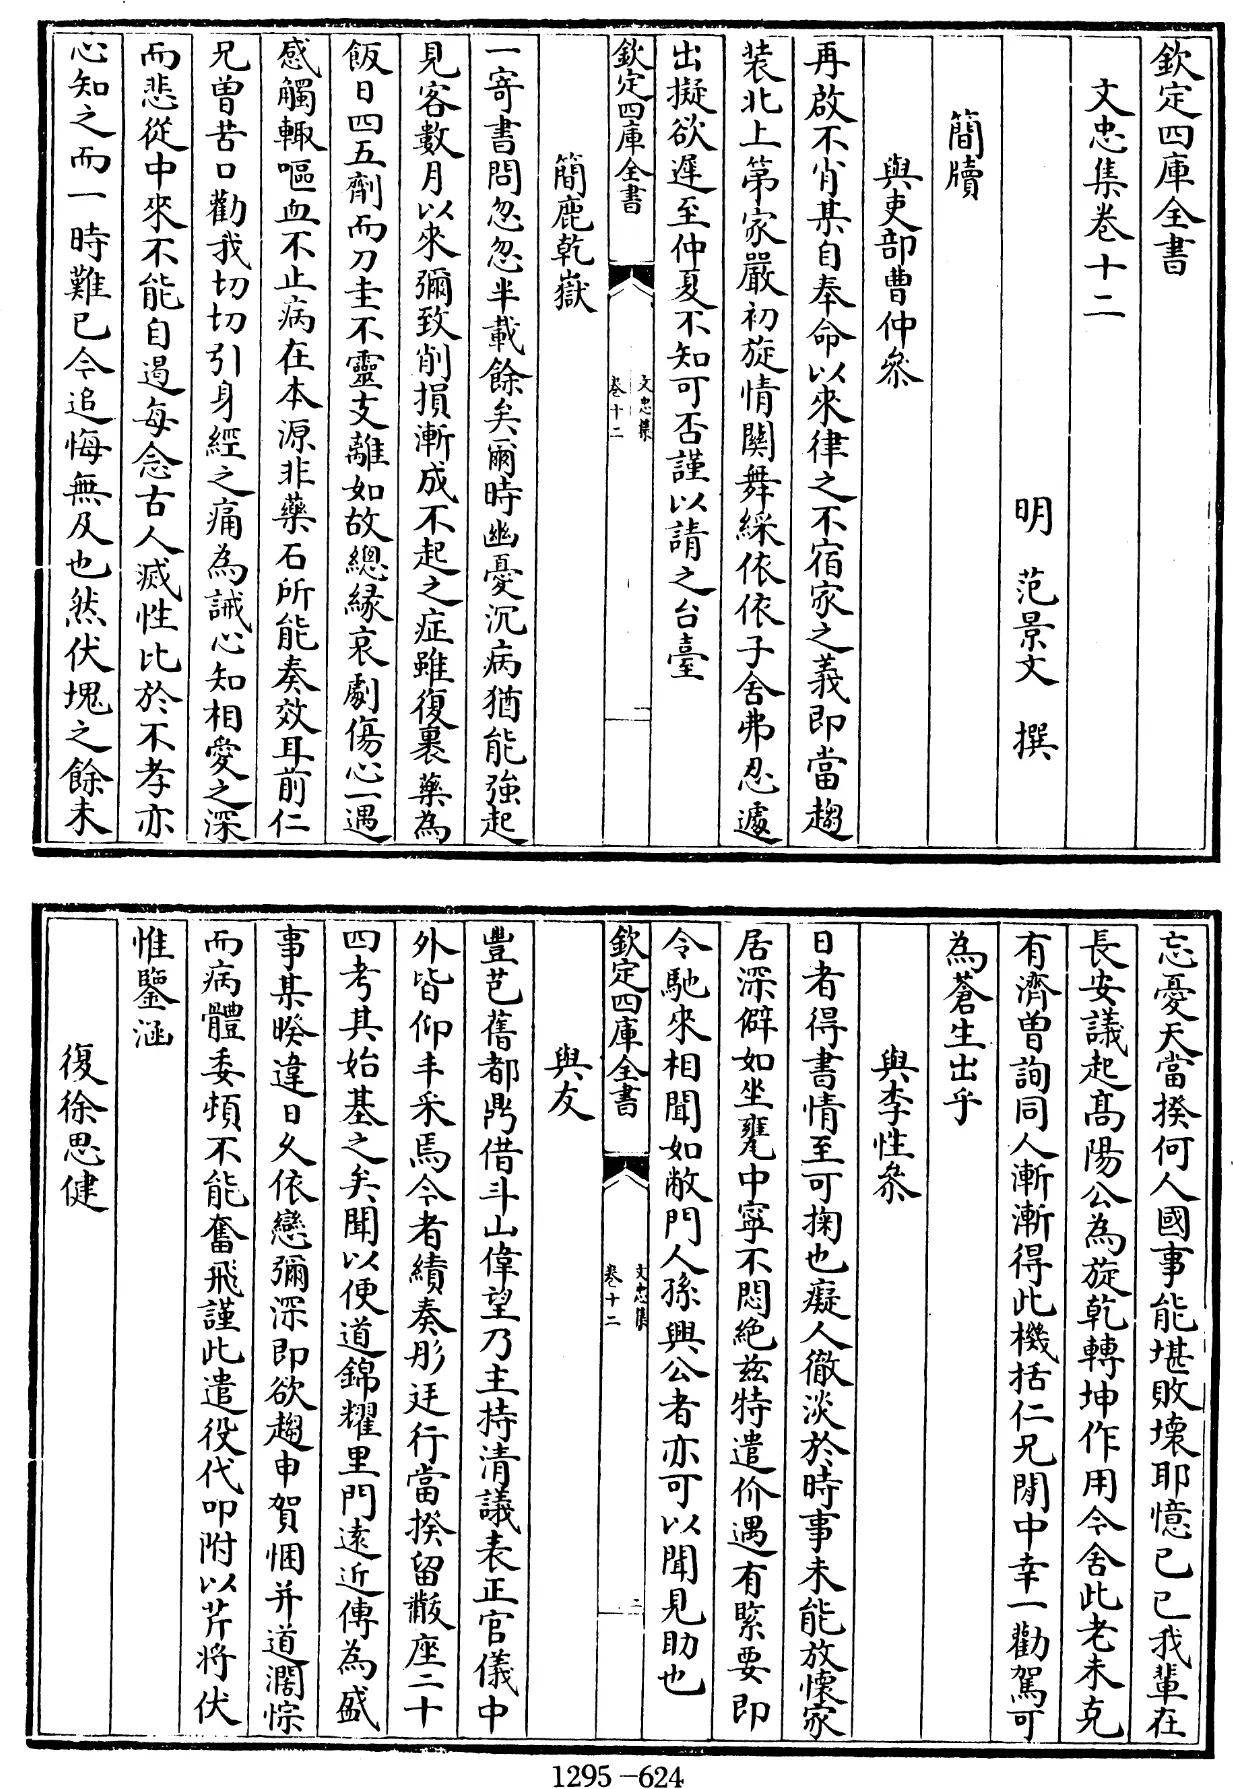 欽定四庫全書
文忠集卷十二
明　范景文　撰
簡牘
與吏部曹仲叅
再啟不肖某自奉命以來律之不宿家之義即當趨
装北上第家嚴初旋情關舞綵依依子舍弗忍遽
出擬欲遲至仲夏不知可否謹以請之台臺
欽定四庫全書
文忠集
卷十二
一
簡鹿乾嶽
一寄書問忽忽半載餘矣爾時幽憂沉病猶能強起
見客數月以來彌致削損漸成不起之症雖復裹藥為
飯日四五劑而刀圭不靈支離如故總緣哀劇傷心一遇
感觸輙嘔血不止病在本源非藥石所能奏效耳前仁
兄曽苦口勸我切切引身經之痛為誡心知相愛之深
而悲從中來不能自遏每念古人滅性比於不孝亦
心知之而一時難已今追悔無及也然伏塊之餘未
忘憂天當揆何人國事能堪敗壞耶憶己巳我輩在
長安議起髙陽公為旋乾轉坤作用今舍此老未克
有濟曽詢同人漸漸得此機括仁兄閒中幸一勸駕可
為蒼生出乎
與李性叅
日者得書情至可掬也癡人徹淡於時事未能放懷家
居深僻如坐甕中寕不悶絶兹特遣价遇有緊要即
令馳來相聞如敝門人孫興公者亦可以聞見助也
欽定四庫全書
文忠集
卷十二
二
與友
豐芑舊都鼎借斗山偉望乃主持清議表正官儀中
外皆仰丰采焉今者績奏彤廷行當揆留黻座二十
四考其始基之矣聞以便道錦耀里門逺近傳為盛
事某暌違日久依戀彌深即欲趨申賀悃并道濶悰
而病體委頓不能奮飛謹此遣役代叩附以芹將伏
惟鑒涵
復徐思健
1295-624